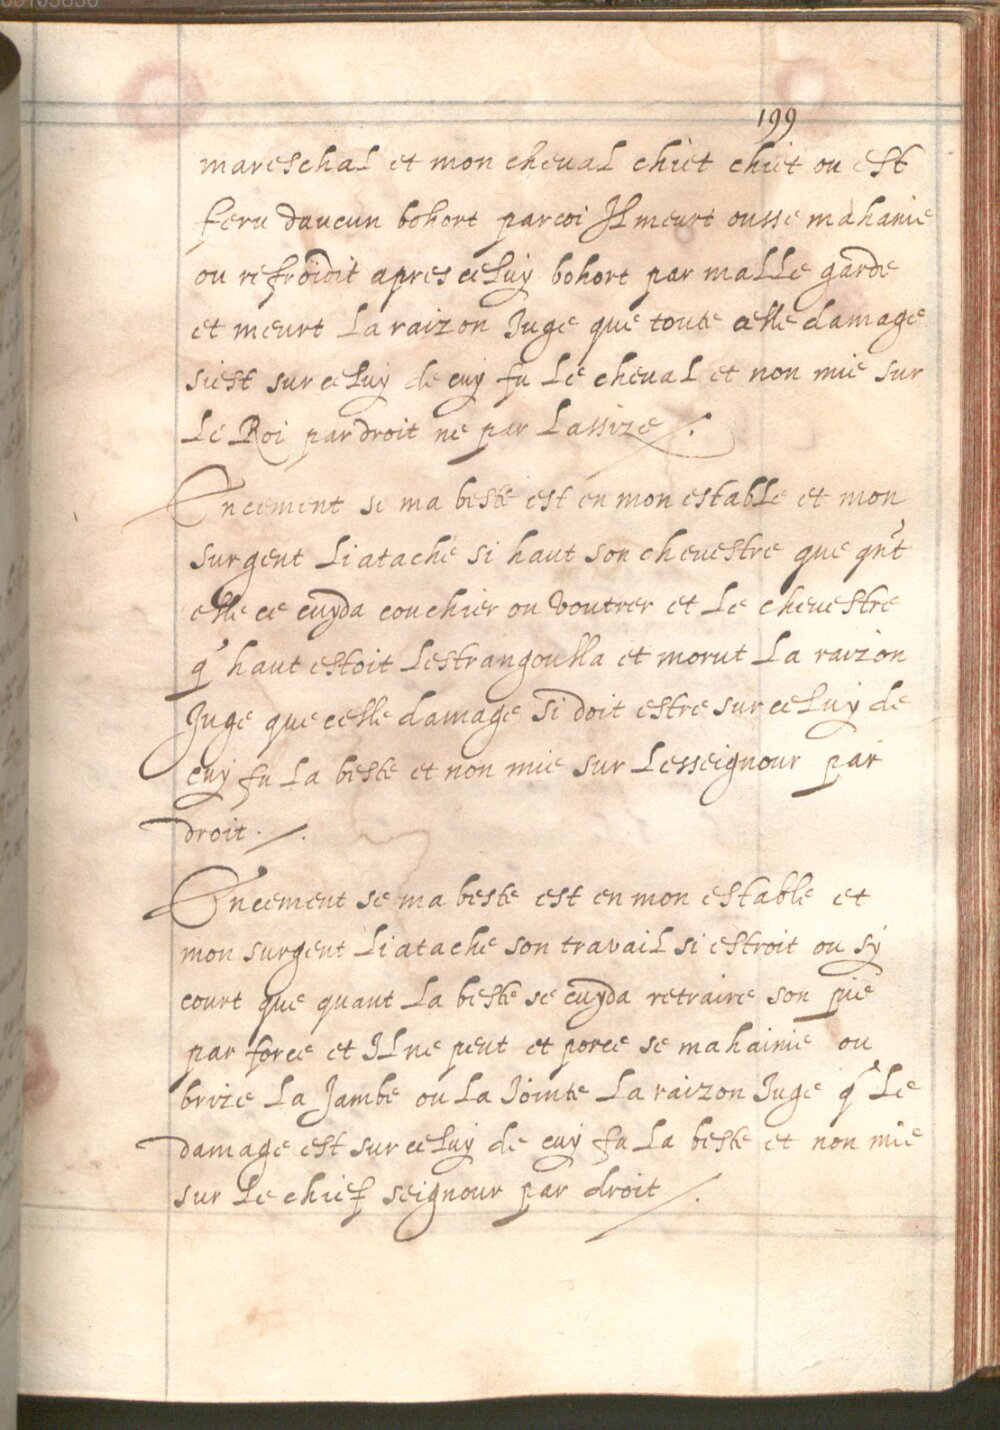 199
mareschal et mon cheval chiet chiet ou est
feru daucun bohort parcoi Il meurt ousse mahanie
ou refroidit apres celuy bohort par malle garde
et meurt La raizon Juge que toute celle damage
siest sur celuy de cuy fu Le cheval et non mie sur
Le Roi par droit ne par Lassize /.
Encement se ma beste est en mon estable et mon
surgent Li atache si haut son chevestre que qn't
elle ce cuyda couchier ou voutrer et Le chevestre
q' haut estoit Lestrangoulla et morut La raizon
Juge que celle damage si doit estre sur celuy de
cuy fu La beste et non mie sur Lesseignour par
droit . /.
Encement se ma beste est en mon estable et
mon surgent Li atache son travail si estroit ou sy
court que quant La beste se cuyda retraire son pie
par force et Il ne peut et porce se mahainie ou
brize La Jambe ou La Jointe La raizon Juge q' Le
damage est sur celuy de cuy fu La beste et non mie
sur Le chief seignour par droit /.